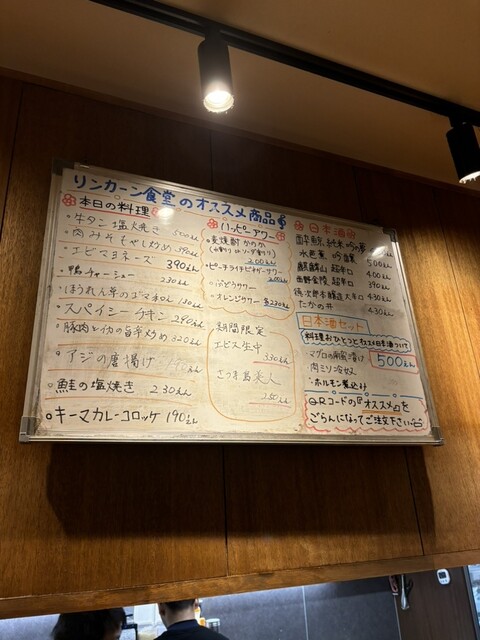 リンカーン食堂のオススメ商品
本日の料理
・牛タン塩焼き 500えん
・肉みそもやし炒め 390えん
・エビマヨネーズ 390えん
・鴨チャーシュー 230えん
・ほうれん草のゴマ和え 130えん
・スパイシーチキン 290えん
・豚肉と の旨辛炒め 320えん
・アジの唐揚げ
・鮭の塩焼き 230えん
・キーマカレーコロッケ 190えん
ハッピーアワー
・麦焼酎かのか
(水割りorソーダ割り)
200えん
・ピーチライチビネガーサワー
200えん
・ぶどうサワー
・オレンジサワー 各230えん
期間限定
エビス生中
330えん
さつま島美人
250えん
日本酒
酔鯨 純米 吟麗
水芭蕉 吟醸 500えん
麒麟山 超辛口 400えん
吉野金陵 超辛口 390えん
徳次郎 本醸造大辛口 430えん
たかの井 430えん
日本酒セット
料理おひとつとオススメ日本酒ついて
500えん
マグロの角煮漬け
肉ミソ冷奴
・ホルモン煮込み
QRコードの『オススメ』を
ごらんになってご注文下さい